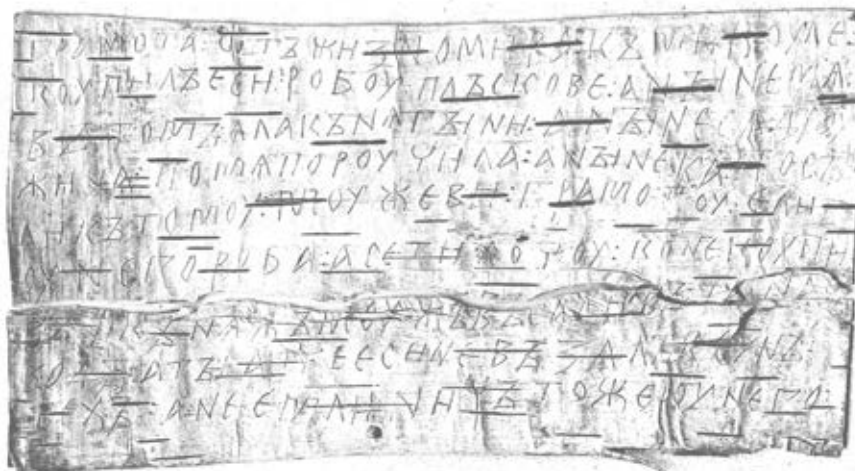 ГРАМОТА : ОТЪ ЖИЗНОМИРА : КЪ МИКОУЛЕ :
КОУПИЛЪ ЕСИ : РОБОУ : ПЛЪСКОВЕ : А НЪІНЕ МѦ :
ВЪ ТОМЪ : ѦЛА КЪНѦГЪІНИ : А НЪІНЕ СѦ ДРОУ
ЖИНА : ПО МѦ ПОРОУЧИЛА : А НЪІНЕ КА : ПОСЪ
ЛИ КЪ ТОМОУ : МОУЖЕВИ : ГРАМОТОУ : ЕЛИ
ОУ НЕГО РОБА : А СЕ ТИ ХОЧОУ : КОНЕ КОУПИ
ВЪ : И КЪНѦЖЪ МОУЖЪ ВЪСАДИВЪ : ТА НА СЪ
ВОДЪІ : А ТЪІ АТЧЕ ЕСИ НЕ ВЪЗАЛЪ КОУНЪ :
ТЕХЪ : А НЕ ЕМЛИ : НИЧЪТО ЖЕ ОУ НЕГО :